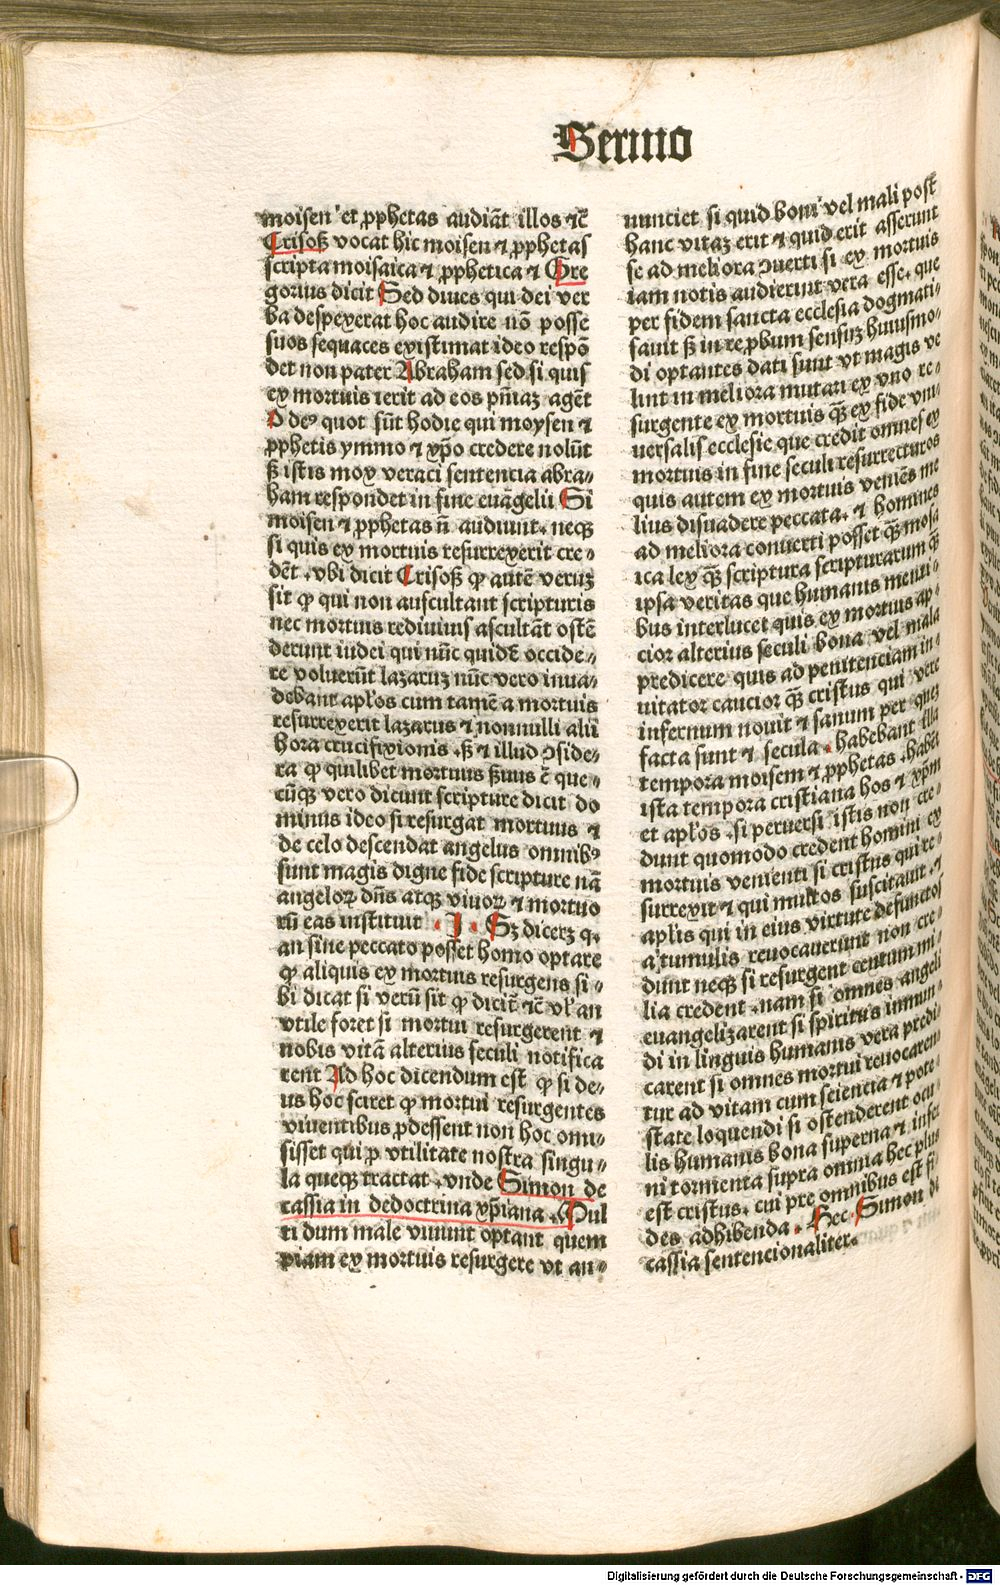 Sermo
moisen et ꝓphetas audiãt illos ⁊c̃
Crisoſꝫ vocat hic moisen ⁊ ꝓphetas
scripta moisaica ⁊ ꝓphetica ⁊ Gre
gorius dicit Sed diues qui dei ver
ba despexerat hoc audire nõ posse
suos sequaces existimat ideo respõ
det non pater Abraham sed si quis
ex mortuis ierit ad eos pñiaꝫ agẽt
O deꝰ quot sũt hodie qui moysen ⁊
ꝓphetis ymmo ⁊ xp̃o credere nolũt
sꝫ istis mox veraci sentencia abra⸗
ham respondet in fine euãgelii Si
moisen ⁊ ꝓphetas ñ audiunt. neqꝫ
si quis ex mortuis resurrexerit cre⸗
dẽt. vbi dicit Crisoſꝫ ꝙ autẽ veruꝫ
sit ꝙ qui non auscultant scripturis
nec mortuis rediuiuis ascultãt ostẽ
derunt iudei qui nũc quidẽ occide⸗
re voluerũt lazaruꝫ nũc vero inua⸗
debant apłos cum tamẽ a mortuis
resurrexerit lazarus ⁊ nonnulli alii
hora crucifixionis. sꝫ ⁊ illud ꝯside⸗
ra ꝙ quilibet mortuus ẜuus ẽ que⸗
cũqꝫ vero dicunt scripture dicit do
minus ideo si resurgat mortuus ⁊
de celo descendat angelus omnibꝰ
sunt magis digne fide scripture nã
angeloꝝ dñs atqꝫ viuoꝝ ⁊ mortuo
rũ eas instituit .I. Sꝫ dicerꝫ q.
an sine peccato posset homo optare
ꝙ aliquis ex mortuis resurgens si⸗
bi dicat si verũ sit ꝙ dicit̃ ⁊c̃ vł an
vtile foret si mortui resurgerent ⁊
nobis vitã alterius seculi notifica
rent Ad hoc dicendum est ꝙ si de⸗
us hoc sciret ꝙ mortui resurgentes
viuentibus ꝓdessent non hoc omi⸗
sisset qui ꝓ vtilitate nostra singu⸗
la queqꝫ tractat. vnde Simon de
cassia in dedoctrina xp̃iana. Mul
ti dum male viuunt optant quem
piam ex mortuis resurgere vt an⸗
nunciet si quid boni vel mali post
hanc vitaꝫ erit ⁊ quid erit asserunt
se ad meliora ꝯuerti si ex mortuis
iam notis audierint vera esse. que
per fidem sancta ecclesia dogmati⸗
sauit sꝫ in reꝓbum sensuꝫ huiusmo⸗
di optantes dati sunt vt magis ve
lint in meliora mutari ex vno re⸗
surgente ex mortuis qꝫ̃ ex fide vni⸗
uersalis ecclesie que credit omnes ex
mortuis in fine seculi resurrecturos
quis autem ex mortuis veniẽs me
lius disuadere peccata. ⁊ homines
ad meliora conuerti posset qꝫ̃ mosa
ica lex qꝫ̃ scriptura scripturarum qꝫ̃
ipsa veritas que humanis menti⸗
bus interlucet quis ex mortuis ap⸗
cior alterius seculi bona vel mala
predicere quis ad penitenciam in⸗
uitator caucior qꝫ̃ cristus qui vere
infernum nouit ⁊ sanum per quez
facta sunt ⁊ secula. habebant illa
tempora moisem ⁊ ꝓphetas. habẽt
ista tempora cristiana hos ⁊ xp̃m
et apłos. si peruersi istis non cre⸗
dunt quomodo credent homini ex
mortuis venienti si cristus qui re⸗
surrexit ⁊ qui multos suscitauit. ⁊
apłis qui in eius virtute defunctos
a tumulis reuocauerunt non cre⸗
dunt neqꝫ si resurgent centum mi⸗
lia credent. nam si omnes angeli
euangelizarent si spiritus immun⸗
di in linguis humanis vera predi⸗
carent si omnes mortui reuocaren
tur ad vitam cum sciencia ⁊ pote⸗
state loquendi si ostenderent ocu
lis humanis bona superna ⁊ infer
ni tormenta supra omnia hec plus
est cristus. cui pre omnibus est fi⸗
des adhibenda. Hec Simon de
cassia sentencionaliter.
Digitalisierung gefördert durch die Deutsche Forschungsgemeinschaft - DFG